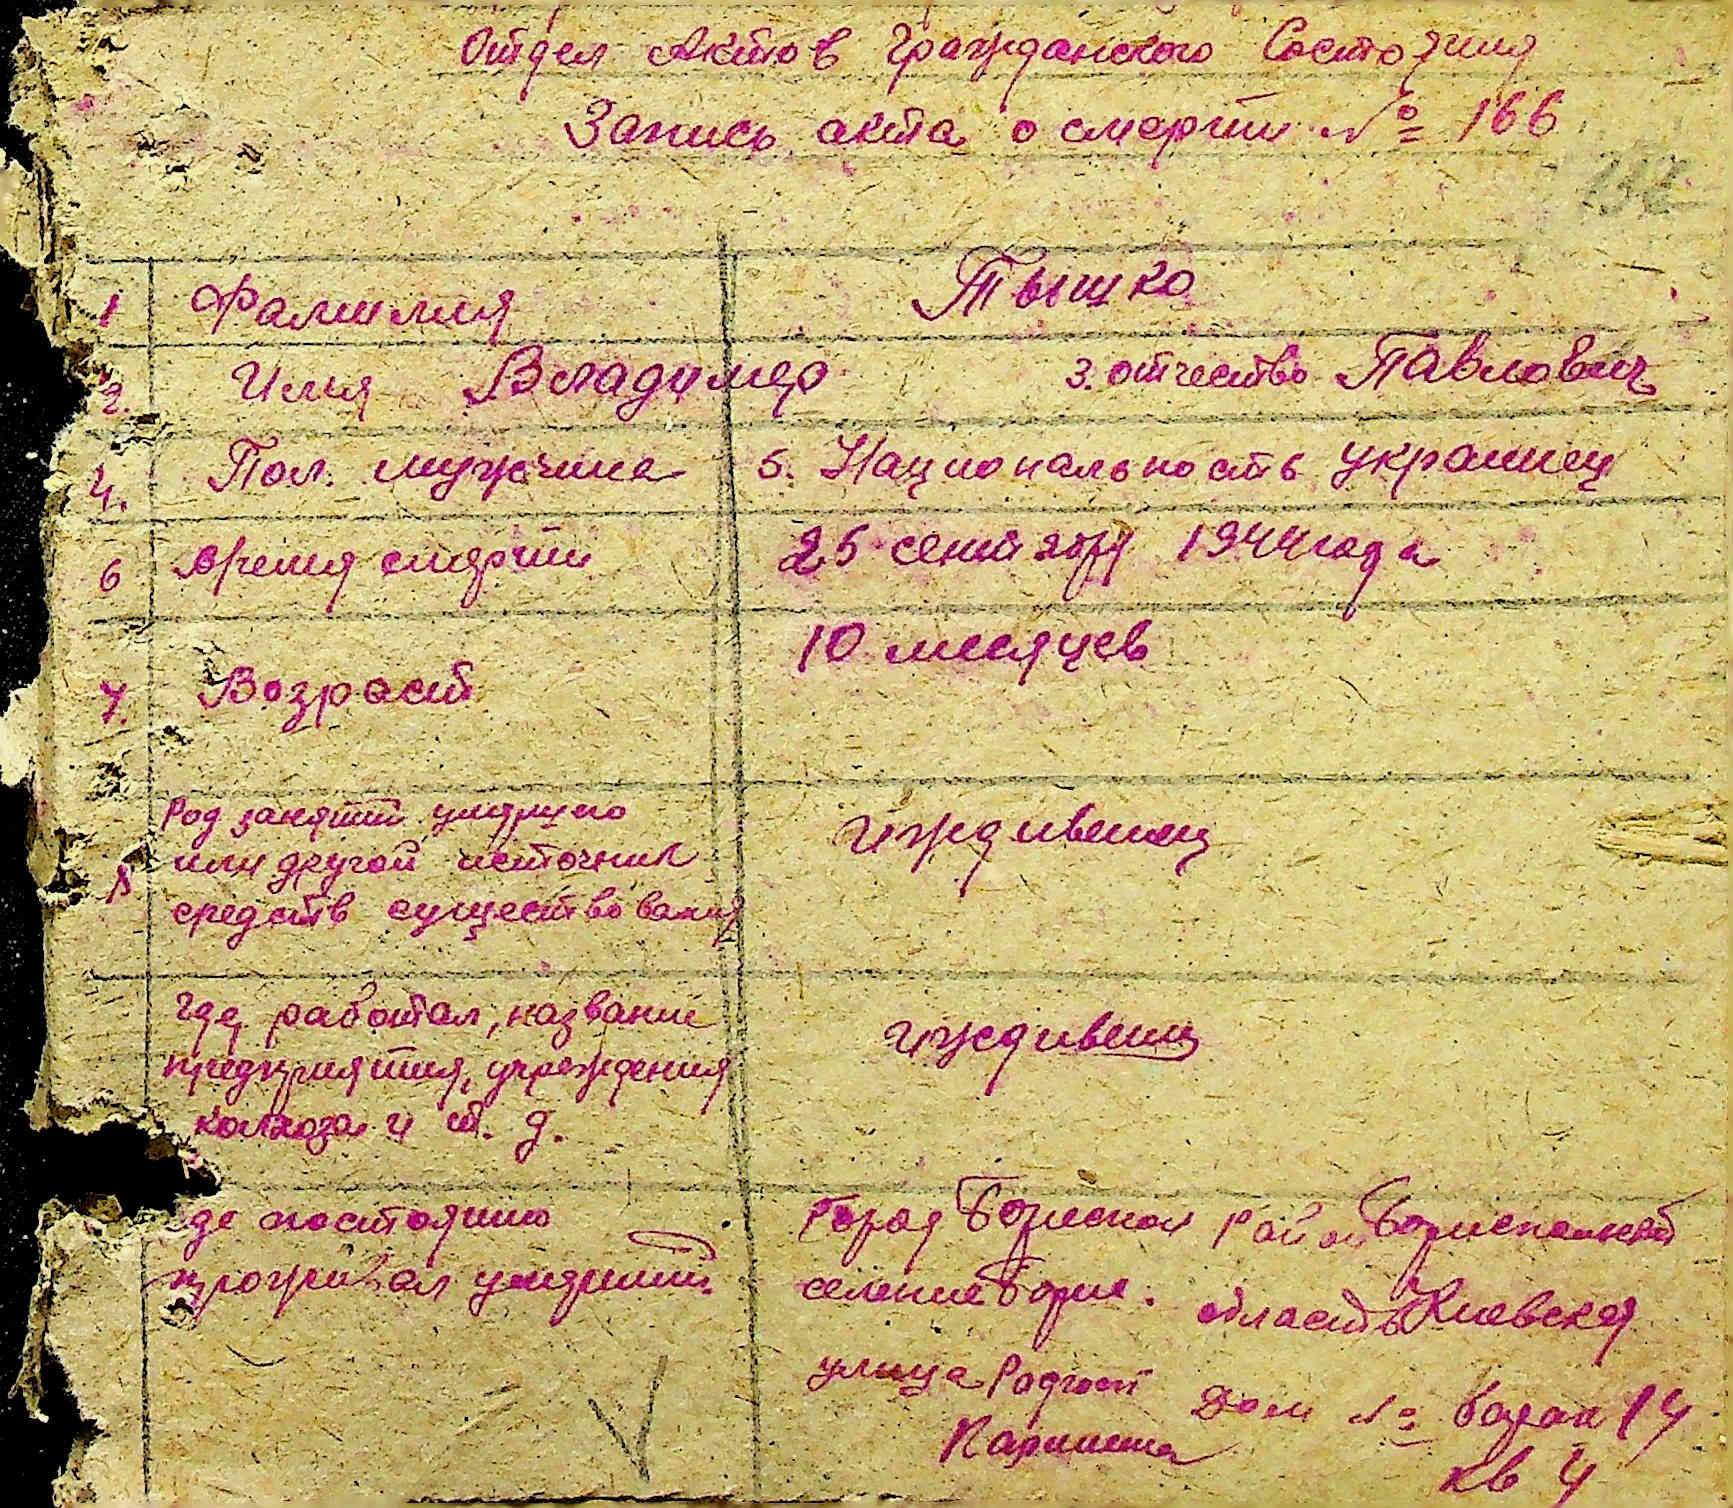 Отдел Актов Гражданского Состояния
Запись акта о смерти № 166
1 Фамилия Тышко
2. Имя Владимер 3. отчество Павлович
4. Пол. мужчина 5. Национальность украинец
6 время смерти 25 сентября 1944 года
7. Возраст 10 месяцев
Род занятий умершего
или другой источник
8 средств существования иждивенец
где работал, название
предприятия, учреждения иждивенец
колхоза и т. д.
де постоянно Город Бориспол Район Бориспольский
проживал умерший. селение Борис. область Киевская
улица Дом № барак 14
кв 4